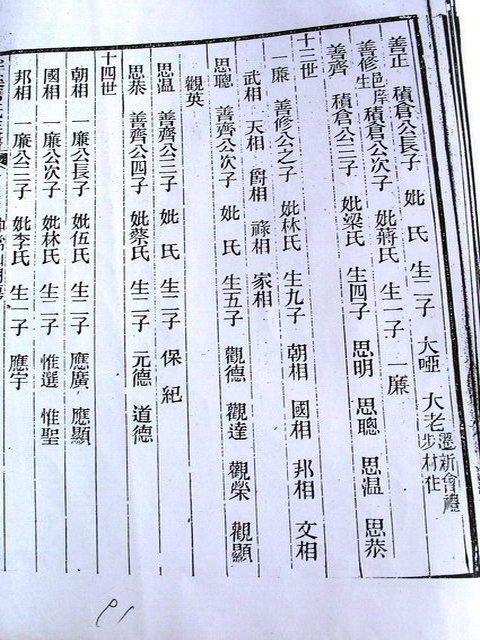 善正 積倉公長子 妣 氏 生二子 大啞 大老 遷新會禮步村住
善修 邑庠生 積倉公次子 妣蔣氏 生一子 一廉
善齊 積倉公三子 妣梁氏 生四子 思明 思聰 思温 思恭
十三世
一廉 善修公之子 妣林氏 生九子 朝相 國相 邦相 文相
武相 天相 爵相 祿相 家相
思聰 善齊公次子 妣 氏 生五子 觀德 觀達 觀榮 觀顯
觀英
思温 善齊公三子 妣 氏 生二子 保 紀
思恭 善齊公四子 妣蔡氏 生二子 元德 道德
十四世
朝相 一廉公長子 妣伍氏 生二子 應廣 應顯
國相 一廉公次子 妣林氏 生二子 惟選 惟聖
邦相 一廉公三子 妣李氏 生一子 應宇